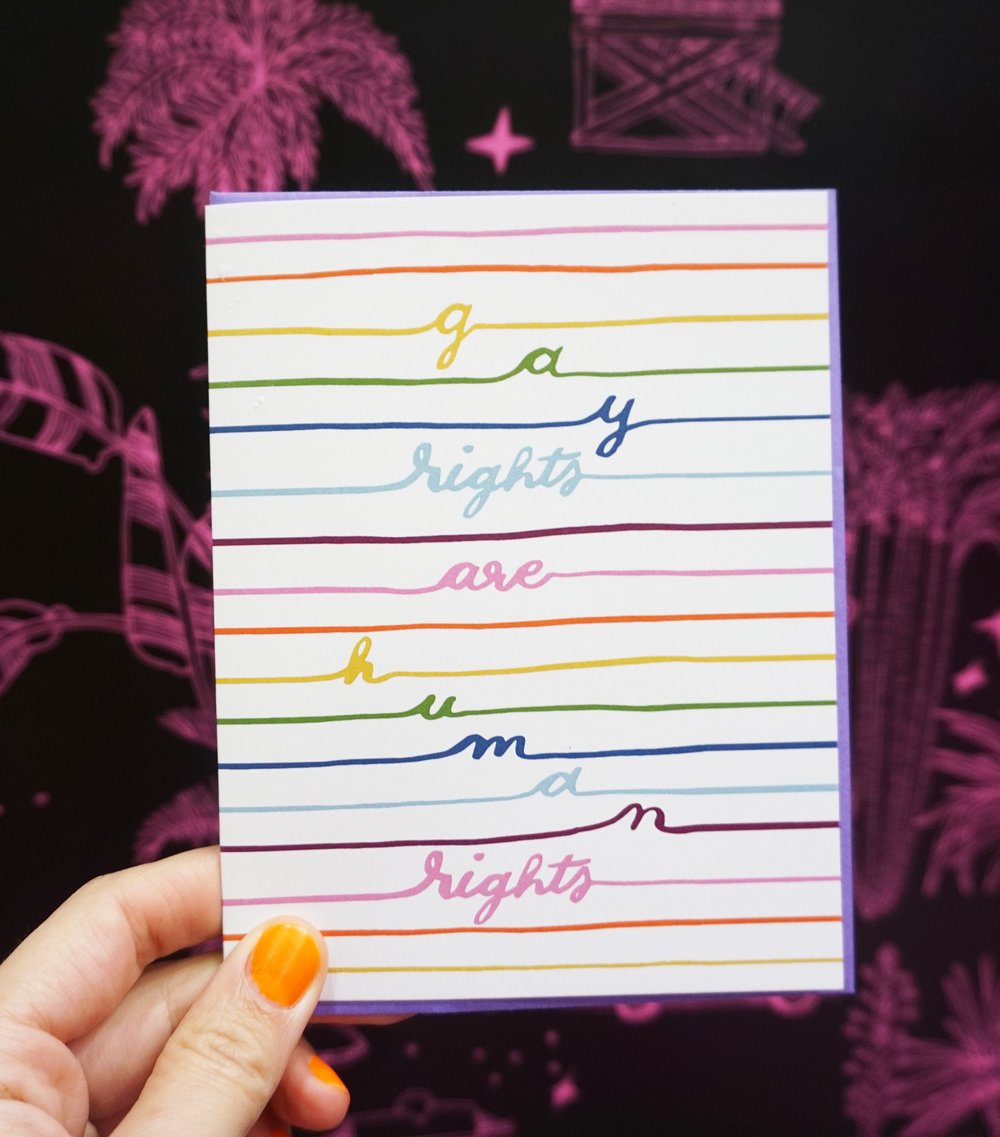 g
a
y
rights
are
h
u
m
a
n
rights